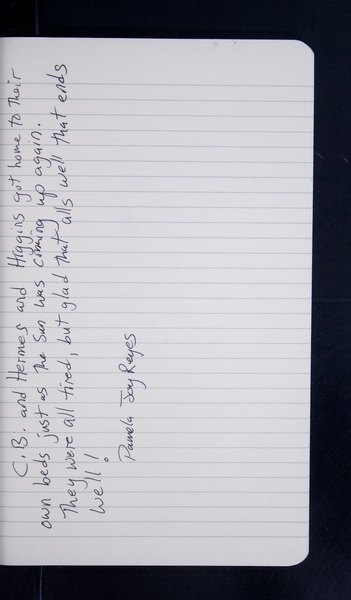 C.B. and Hermes and Higgins got home to their
own beds just as the sun was coming up again.
They were all tired, but glad that alls well that ends
well!
Pamela Joy Reyes